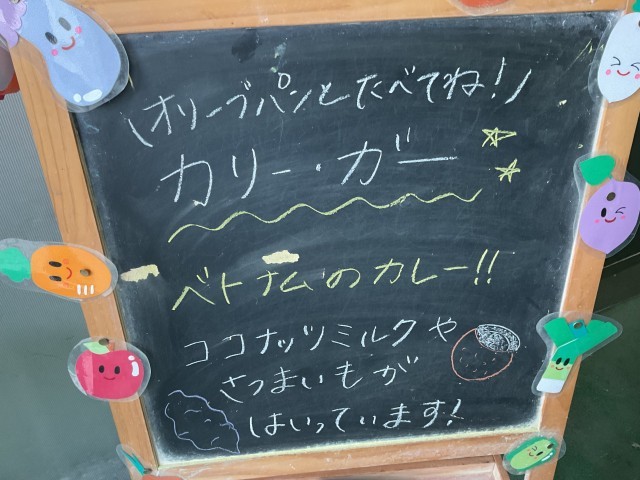 \オリーブパンとたべてね!/
カリー・ガー
ベトナムのカレー!!
ココナッツミルクや
さつまいもが
はいっています!